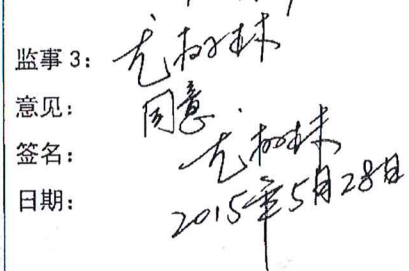 监事 3: 尤树林
意见: 同意.
签名: 尤树林
日期: 2015年5月28日